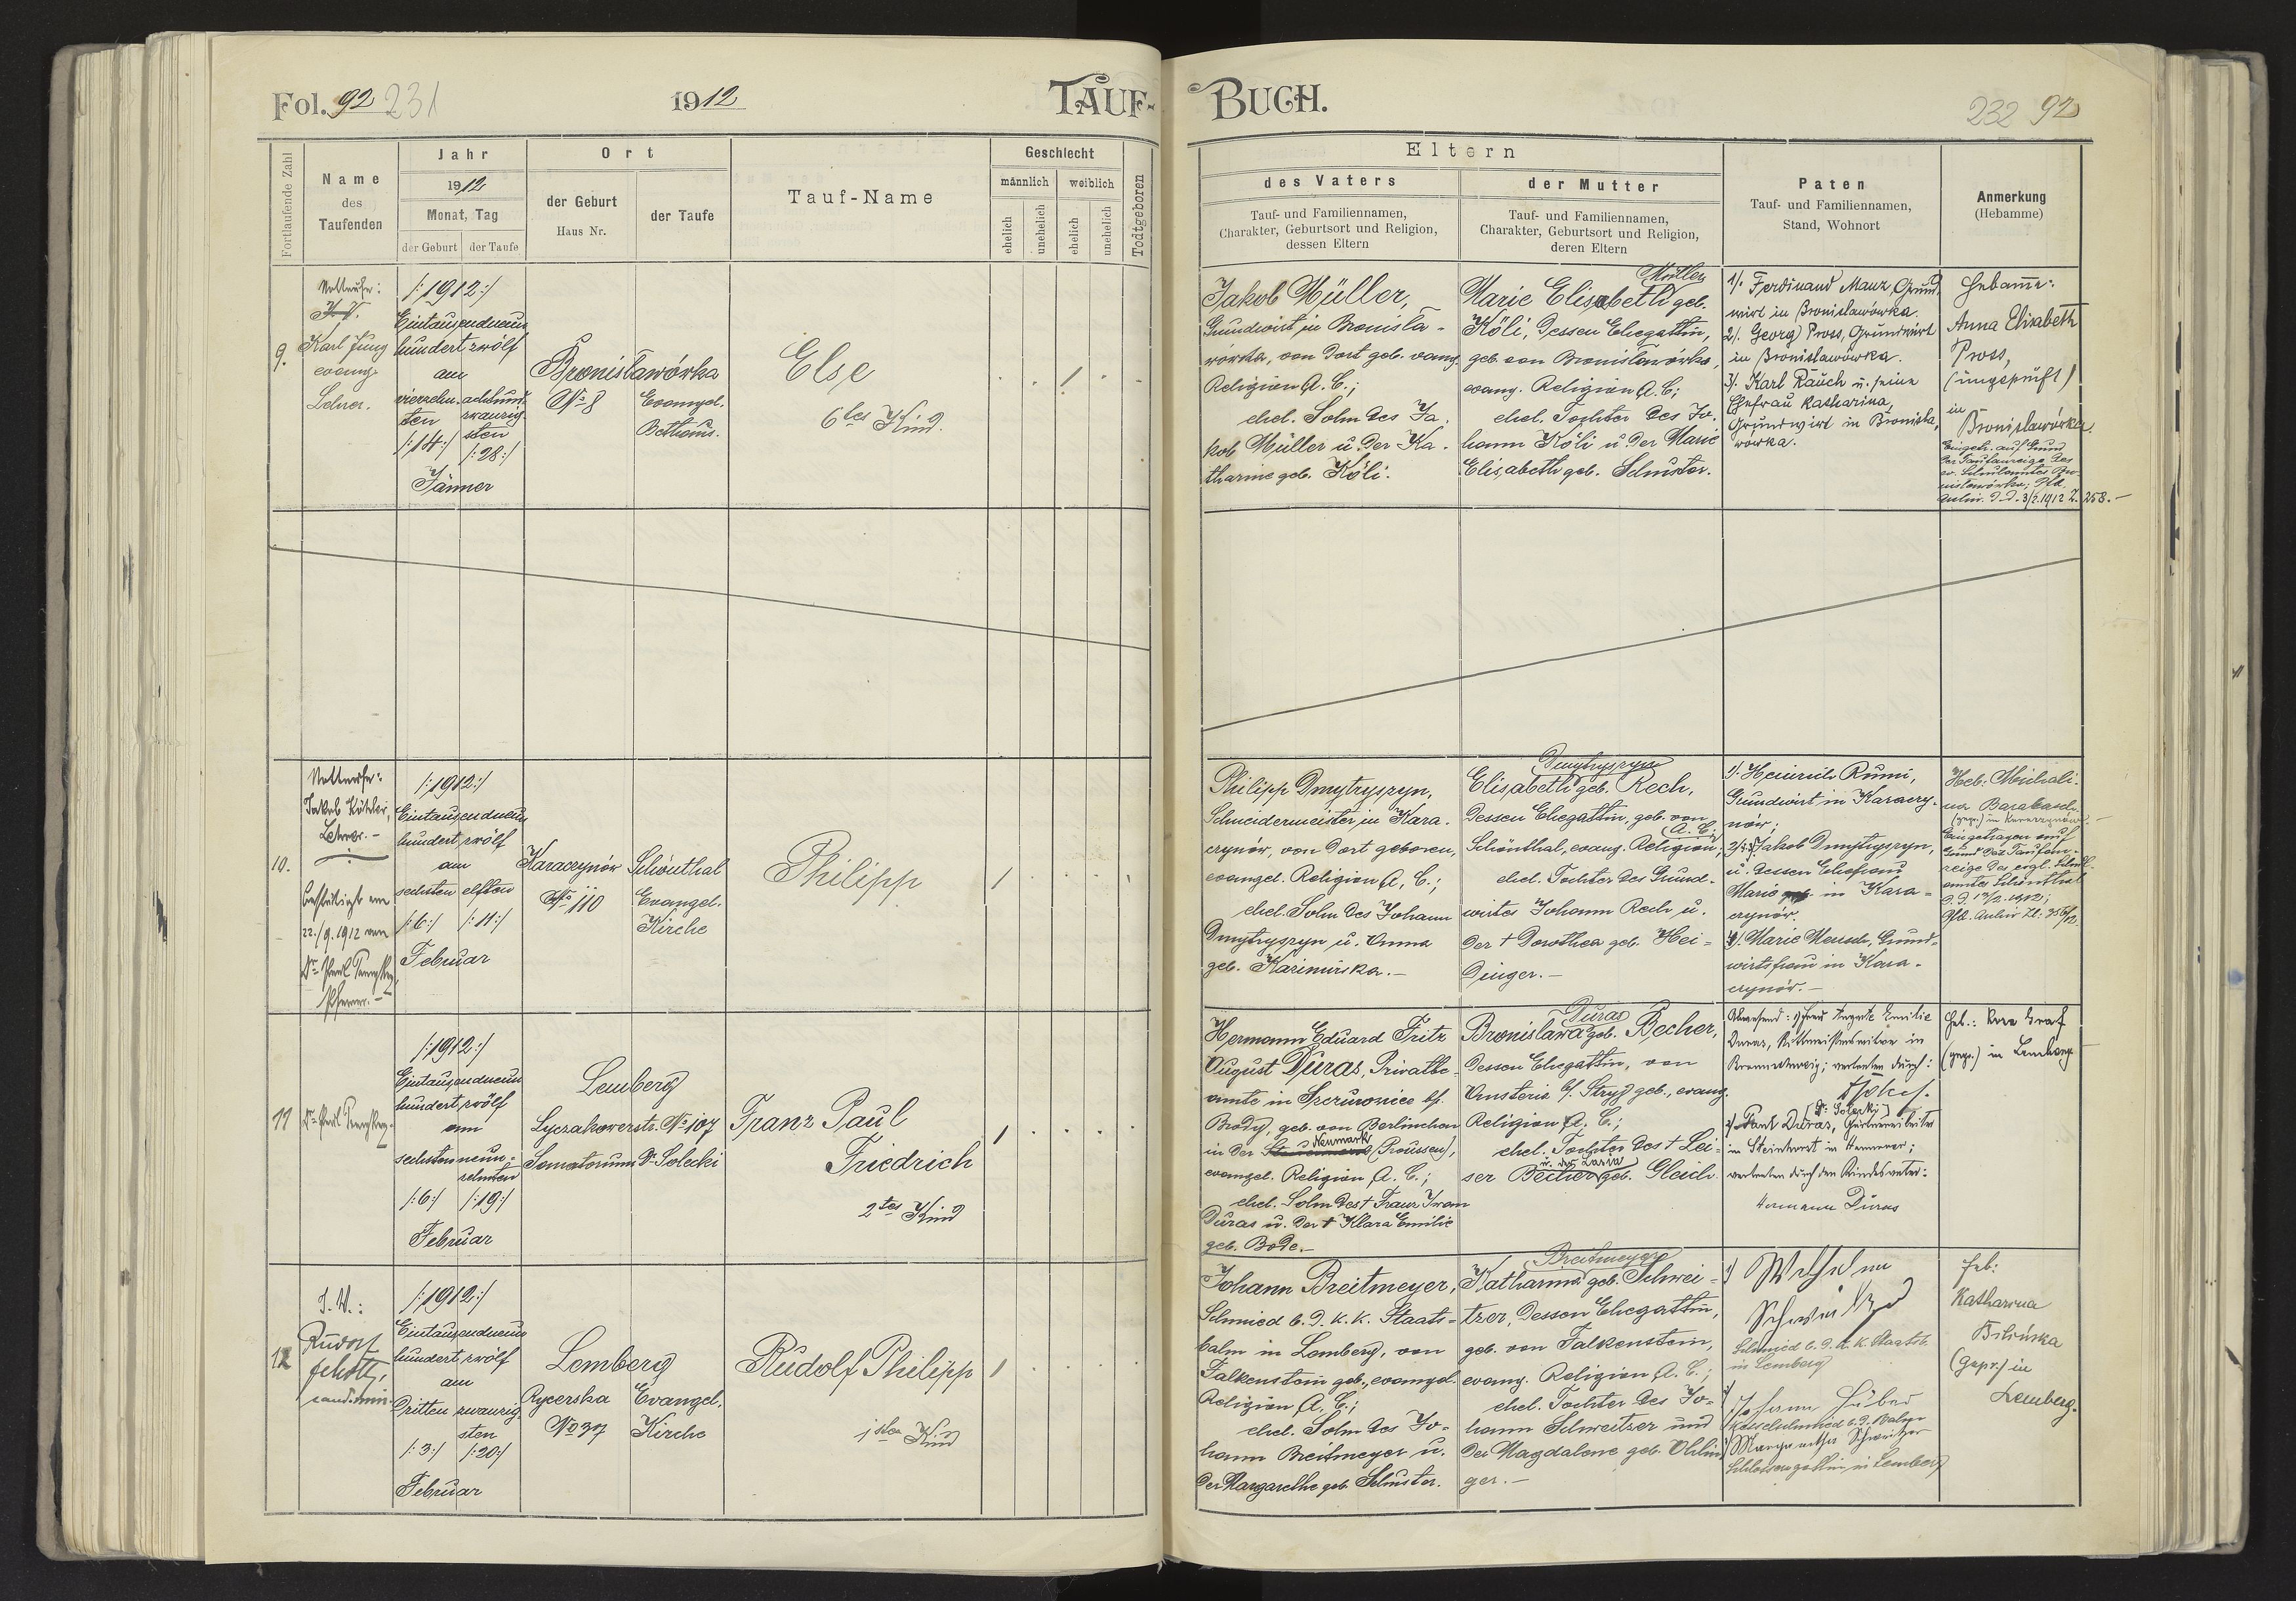 Fol. 92 231
1912
TAUF-
BUCH.
232 92
Fortlaufende Zahl
Name
des
Taufenden
Jahr
1912
Monat, Tag
der Geburt
der Taufe
Ort
der Geburt
Haus Nr.
der Taufe
Tauf-Name
Geschlecht
männlich
weiblich
ehelich
unehelich
ehelich
unehelich
Todtgeboren
Eltern
des Vaters
Tauf- und Familiennamen,
Charakter, Geburtsort und Religion,
dessen Eltern
der Mutter
Tauf- und Familiennamen,
Charakter, Geburtsort und Religion,
deren Eltern
Paten
Tauf- und Familiennamen,
Stand, Wohnort
Anmerkung
(Hebamme)
9.
Karl Jung
evang.
Lehrer.
/:1912:/
Eintausendneun
hundert zwölf
am
vierzehn-
ten
/:14:/
achtund-
zwanzig-
sten
/:28:/
Jänner
Bronisławówka
No 8
Evangel.
Bethaus.
Else
6tes Kind.
Jakob Müller,
Grundwirt in Bronisła-
wówka, von dort geb. evang.
Religion A. C.;
ehel. Sohn des Ja-
kob Müller u. der Ka-
tharine geb. Köli.
Müller
Marie Elisabeth geb.
Köli, dessen Ehegattin,
geb. von Bronisławówka,
evang. Religion A. C.;
ehel. Tochter des Jo-
hann Köli u. der Marie
Elisabeth geb. Schuster.
1/. Ferdinand Manz, Grund-
wirt in Bronisławówka.
2/. Georg Pross, Grundwirt
in Bronisławówka.
3/. Karl Rauch u. seine
Ehefrau Katharina,
Grundwirt in Bronisła-
wówka.
Hebamme:
Anna Elisabeth
Pross,
(ungeprüft)
in
Bronisławówka.
Eingetr. auf Grund
der Taufanzeige des
ev. Schulamtes Bro-
nisławówka; Pfd.
Archiv. d. d. 3/2.1912 Z. 258.-
10.
Nottaufe:
Jakob Köhler,
Lehrer.-
Bestätigt am
22./9.1912 von
Pfarrer.-
/:1912:/
Eintausendneun
hundert zwölf
am
sechsten
/:6:/
elften
/:11:/
Februar
Karaczynów
No 110
Schönthal
Evangel.
Kirche
Philipp
Philipp Dmytryszyn,
Schneidermeister in Kara-
czynów, von dort geboren,
evangel. Religion A. C.;
ehel. Sohn des Johann
Dmytryszyn u. Anna
geb. Kazimirska.-
Dmytryszyn
Elisabeth geb. Rech,
dessen Ehegattin, geb. von
Schönthal, evang. Religion A. C.;
ehel. Tochter des Grund-
wirtes Johann Rech u.
der † Dorothea geb. Hei-
dinger.-
1/. Heinrich Rumi,
Grundwirt in Karaczy-
nów;
2/. 3/. Jakob Dmytryszyn,
u. dessen Ehefrau
Marie in Kara-
czynów.
4/. Marie Mensch, Grund-
wirtsfrau in Kara-
czynów.-
Heb: Michali-
na Barabasch
(gepr.) in Karaczynów.-
Eingetragen auf
Grund der Taufan-
zeige des evgl. Schul-
amtes Schönthal
d. d. 13/2. 1912;
Pfd. Archiv Zl: 356/12.
11
/:1912:/
Eintausendneun
hundert zwölf
am
sechsten
/:6:/
neun-
zehnten
/:19:/
Februar
Lemberg
Lyczakowerstr. No 107
Sanatorium Dr. Solecki
Franz Paul
Friedrich
2tes Kind
Hermann Eduard Fritz
August Duras, Privatbe-
amte in Szczurowice bf.
Brody, geb. von Berlinchen
in der Neumark (Preussen),
evangel. Religion A. C.;
ehel. Sohn des † Franz Iwan
Duras u. der † Klara Emilie
geb. Bode.-
Duras
Bronislawa geb. Becher,
dessen Ehegattin, von
b/. Stryj geb., evang.
Religion A. C.;
ehel. Tochter des † Lei-
ser Becher u. der Laura geb. Gleich.
Abwesend: 1/ Frau Auguste Emilie
Duras, Rittmeisterswitwe in
Braunschweig; vertreten durch:
2/ Paul Duras,
in Steinhorst in Hannover;
vertreten durch den Kindesvater:
Hermann Duras
Heb.: Graf
(gepr.) in Lemberg
12
I. V.:
Rudolf
cand. min.
/:1912:/
Eintausendneun
hundert zwölf
am
dritten
/:3:/
zwanzig-
sten
/:20:/
Februar
Lemberg
Rycerska
No 37
Evangel.
Kirche
Rudolf Philipp
1stes Kind
Johann Breitmeyer,
Schmied b. d. k. k. Staats-
bahn in Lemberg, von
Falkenstein geb., evangel.
Religion A. C.;
ehel. Sohn des Jo-
hann Breitmeyer u.
der Margarethe geb. Schuster.
Breitmeyer
Katharina geb. Schwei-
tzer, dessen Ehegattin,
geb. von Falkenstein,
evang. Religion A. C.;
ehel. Tochter des Jo-
hann Schweitzer und
der Magdalene geb. Ohlin-
ger.-
1/ Wilhelm
Schweitzer
Schmied b. d. k. k. Staatsb.
in Lemberg
Johann Huber
Kesselschmied b. d. Bahn
Margaretha Schweitzer
Schlossersgattin in Lemberg
Heb:
Katharina
Bilińska
(gepr.) in
Lemberg.